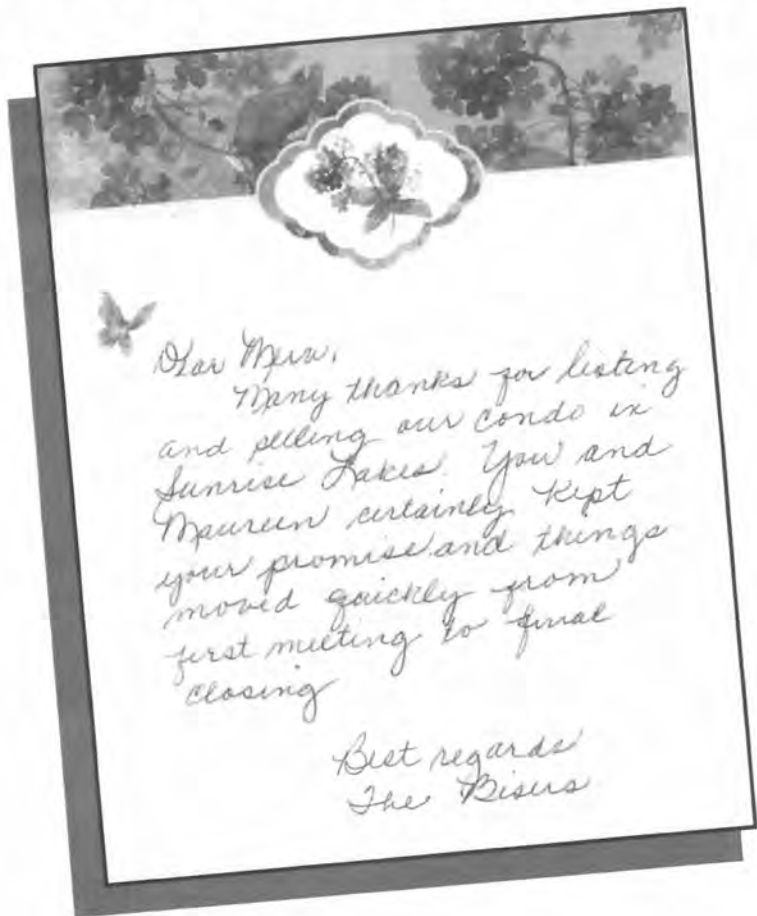 Dear Merv,
Many thanks for listing
and selling our condo in
Sunrise Lakes. You and
Maureen certainly kept
your promise and things
moved quickly from
first meeting to final
closing
Best regards
The Bisers